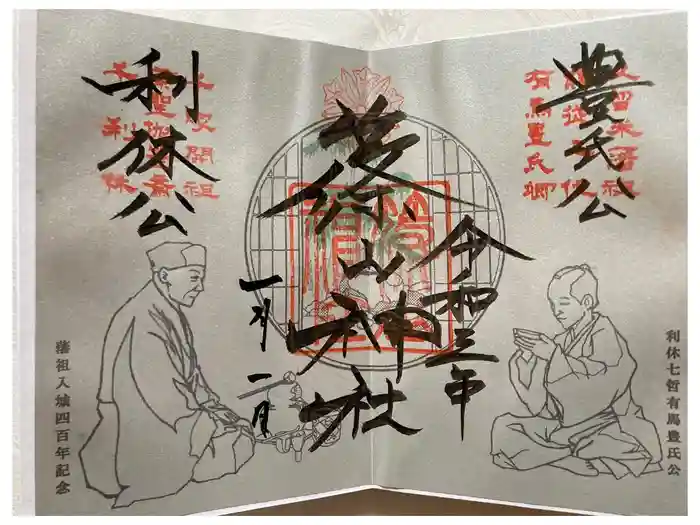 豊氏公
久留米藩祖
有馬豊氏卿
利休七哲有馬豊氏公
令和三年
篠山神社
一月一日
利休公
千利休
藩祖入城四百年記念